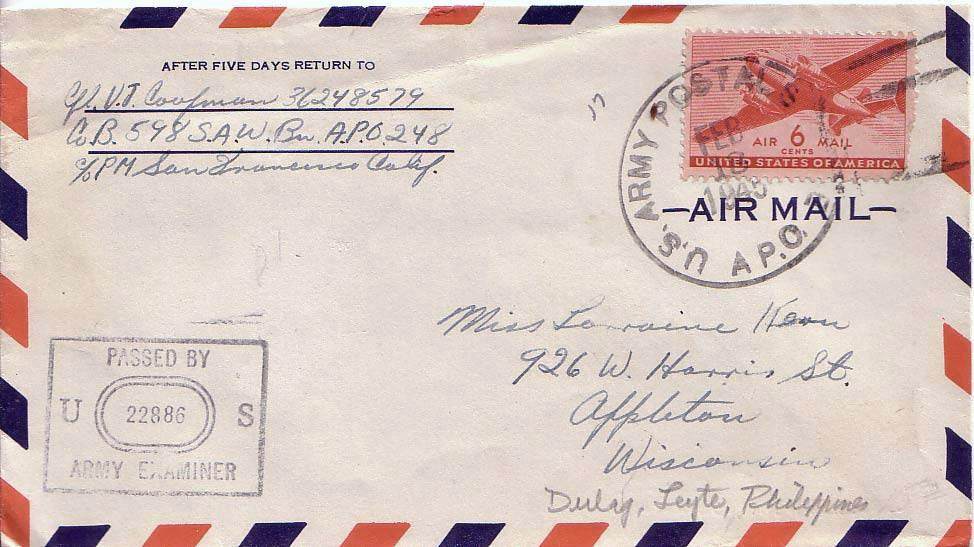 AFTER FIVE DAYS RETURN TO
V.J. Coofman 36248579
Co.B. 598 S.A.W. Bn. A.P.O. 248
c/o PM San Francisco Calif.
U.S. ARMY POSTAL
A.P.O.
FEB
1945
AIR 6 MAIL
CENTS
UNITED STATES OF AMERICA
—AIR MAIL—
Miss Lorraine Kern
926 W. Harris St.
Appleton
Wisconsin
Dulag, Leyte, Philippines
PASSED BY
U 22886 S
ARMY EXAMINER